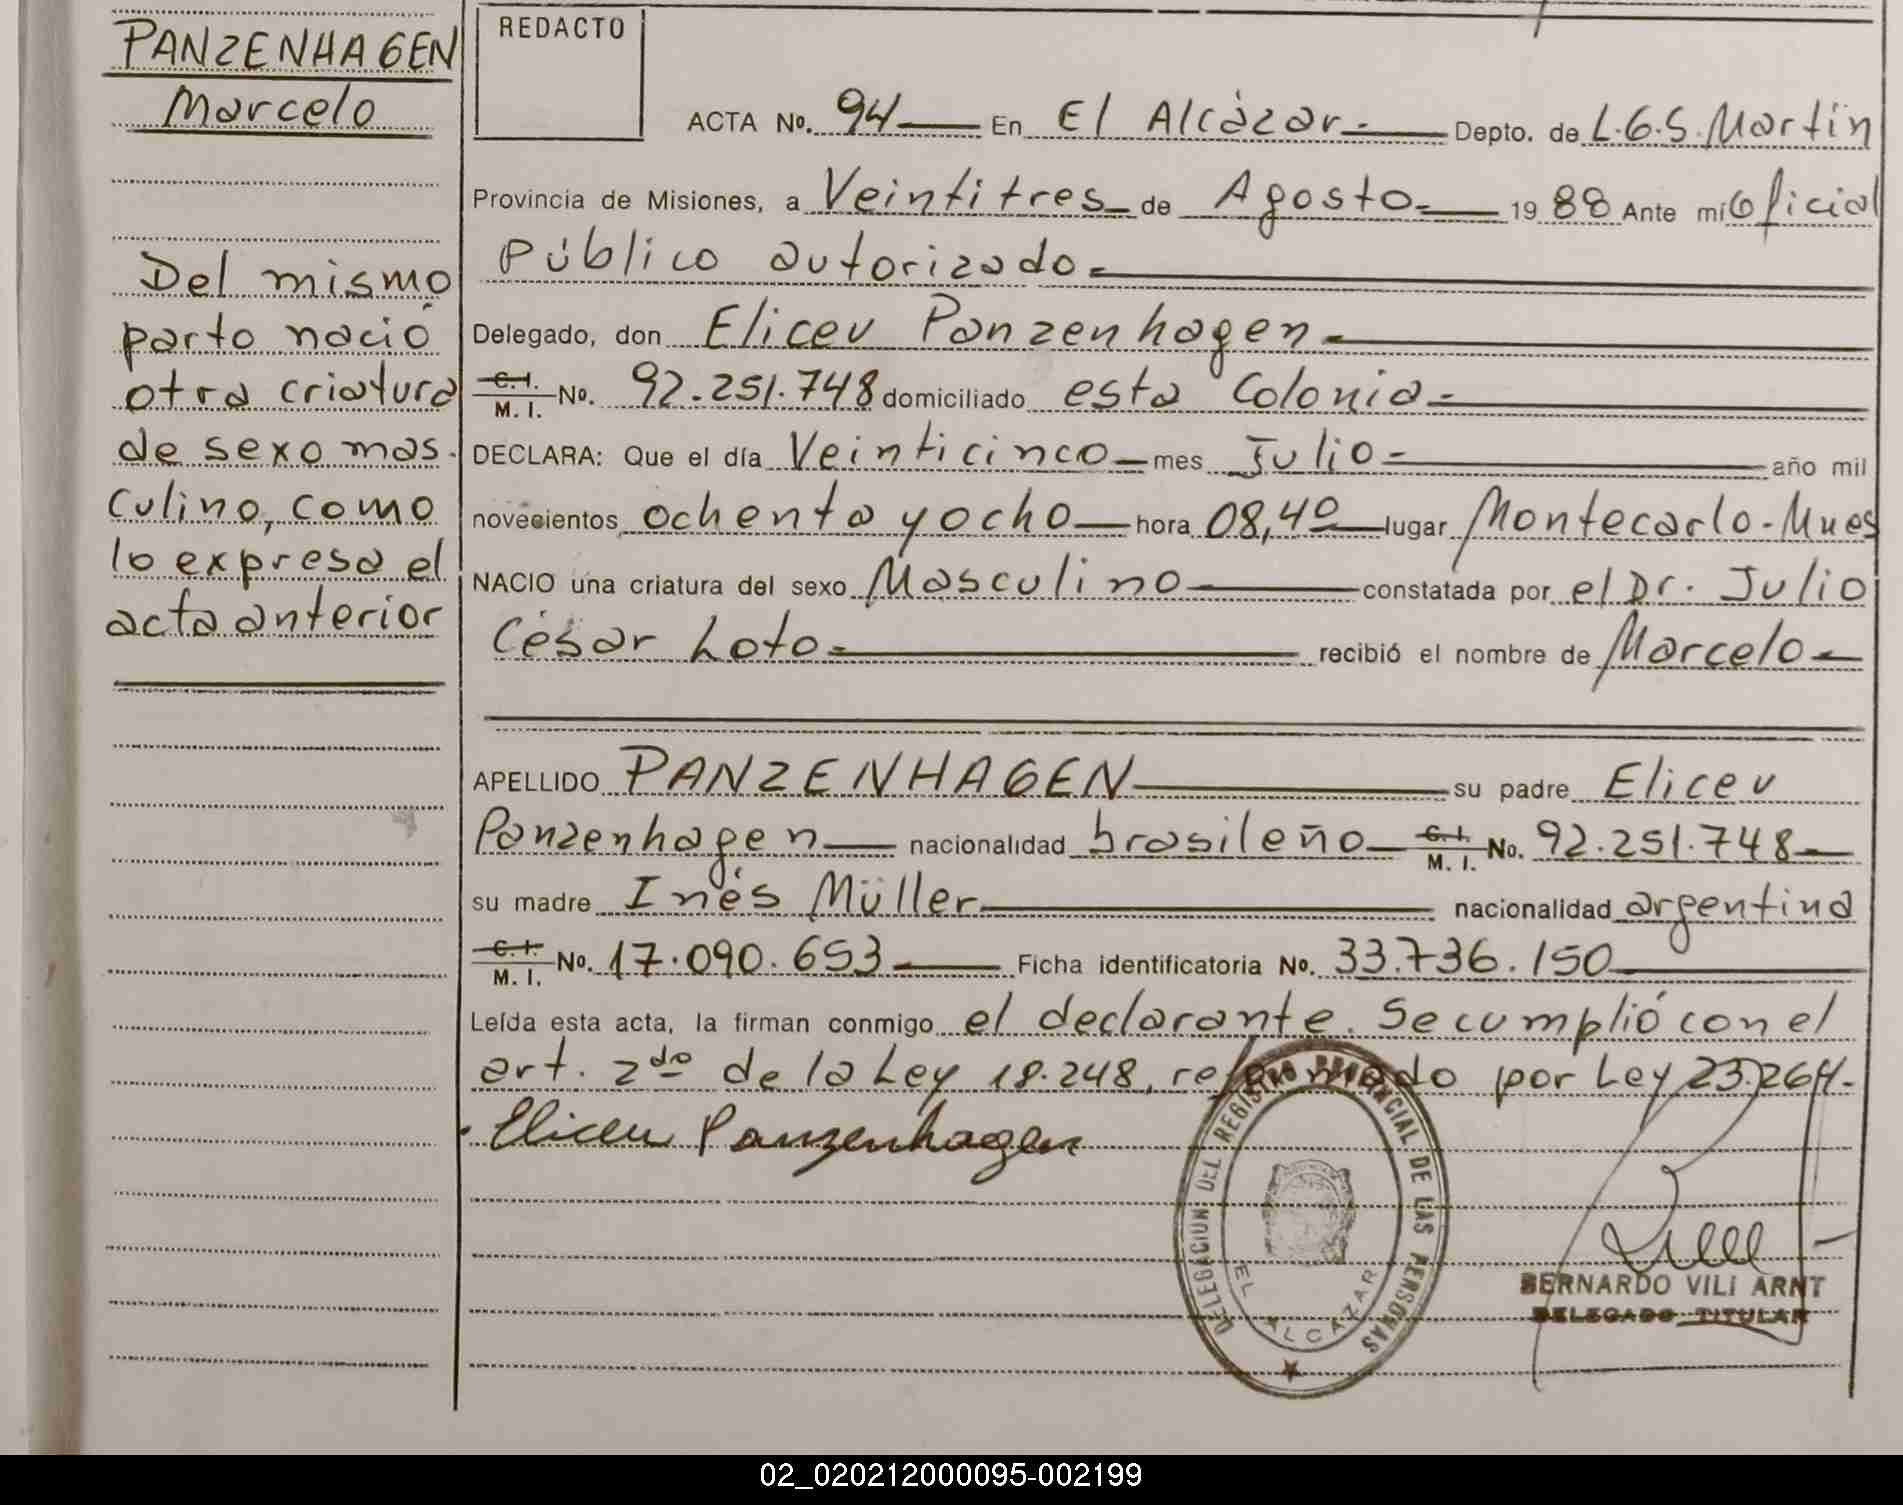 PANZENHAGEN
Marcelo
Del mismo
parto nació
otra criatura
de sexo mas-
culino, como
lo expresa el
acta anterior
REDACTO
ACTA No. 94 En El Alcázar.- Depto. de L.G.S. Martín
Provincia de Misiones, a Veintitres de Agosto.- 1988 Ante mí Oficial
Público autorizado.-
Delegado, don Eliceu Panzenhagen.-
C.I. M.I. No. 92.251.748 domiciliado esta Colonia.-
DECLARA: Que el día Veinticinco mes Julio.- año mil
novecientos ochenta y ocho hora 08,40 lugar Montecarlo-Mnes
NACIO una criatura del sexo Masculino constatada por el Dr. Julio
César Loto.- recibió el nombre de Marcelo-
APELLIDO PANZENHAGEN su padre Eliceu
Panzenhagen nacionalidad brasileño C.I. M.I. No. 92.251.748
su madre Inés Müller nacionalidad argentina
C.I. M.I. No. 17.090.653 Ficha identificatoria No. 33.736.150
Leída esta acta, la firman conmigo el declarante. Se cumplió con el
art. 2do de la Ley 18.248, reformado por Ley 23.264.-
Eliceu Panzenhagen
DELEGACION DEL REGISTRO PROVINCIAL DE LAS PERSONAS
EL ALCAZAR
BERNARDO VILI ARNT
DELEGADO TITULAR
02_020212000095-002199